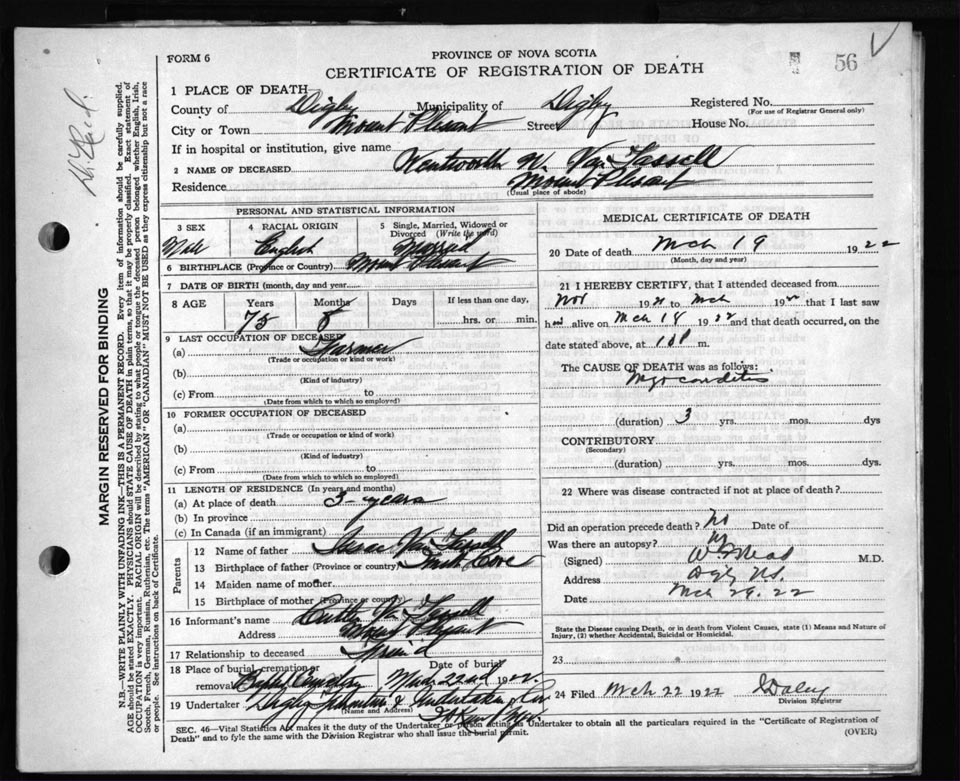 FORM 6
PROVINCE OF NOVA SCOTIA
CERTIFICATE OF REGISTRATION OF DEATH
56
1 PLACE OF DEATH
County of Digby Municipality of Digby Registered No.
(For use of Registrar General only)
City or Town Mount Plesant Street House No.
If in hospital or institution, give name
2 NAME OF DECEASED Wentworth W. Van Tassell
Residence Mount Plesant
(Usual place of abode)
PERSONAL AND STATISTICAL INFORMATION
3 SEX Male
4 RACIAL ORIGIN English
5 Single, Married, Widowed or Divorced (Write the word) Married
6 BIRTHPLACE (Province or Country) Mount Plesant
7 DATE OF BIRTH (month, day and year)
8 AGE Years Months Days If less than one day,
75 8 hrs. or min.
9 LAST OCCUPATION OF DECEASED
(a) Farmer
(Trade or occupation or kind or work)
(b)
(Kind of industry)
(c) From to
(Date from which to which so employed)
10 FORMER OCCUPATION OF DECEASED
(a)
(Trade or occupation or kind of work)
(b)
(Kind of industry)
(c) From to
(Date from which to which so employed)
11 LENGTH OF RESIDENCE (In years and months)
(a) At place of death years
(b) In province
(c) In Canada (if an immigrant)
Parents
12 Name of father Isaac Van Tassell
13 Birthplace of father (Province or country) Cove
14 Maiden name of mother
15 Birthplace of mother (Province or country)
16 Informant's name V Tassell
Address Mount Plesant
17 Relationship to deceased
18 Place of burial, cremation or removal Cemetery Date of burial 22nd 1922
19 Undertaker Digby & Undertaker
(Name and Address)
MEDICAL CERTIFICATE OF DEATH
20 Date of death Mch 19 1922
(Month, day and year)
21 I HEREBY CERTIFY, that I attended deceased from
Nov 1921 to Mch 1922 that I last saw
him alive on Mch 18 1922 and that death occurred, on
date stated above, at m.
The CAUSE OF DEATH was as follows:
Myocarditis
(duration) 3 yrs. mos. dys
CONTRIBUTORY
(Secondary)
(duration) yrs. mos. dys.
22 Where was disease contracted if not at place of death?
Did an operation precede death? No Date of
Was there an autopsy? No
(Signed) M.D.
Address Digby N.S.
Date Mch 29. 22
State the Disease causing Death, or in death from Violent Causes, state (1) Means and Nature of Injury, (2) whether Accidental, Suicidal or Homicidal.
23
24 Filed Mch 22 1922
Division Registrar
SEC. 46—Vital Statistics Act makes it the duty of the Undertaker or person acting as Undertaker to obtain all the particulars required in the "Certificate of Registration of
Death" and to fyle the same with the Division Registrar who shall issue the burial permit.
(OVER)
MARGIN RESERVED FOR BINDING
N.B.—WRITE PLAINLY WITH UNFADING INK—THIS IS A PERMANENT RECORD. Every item of information should be carefully supplied.
AGE should be stated EXACTLY. PHYSICIANS should STATE CAUSE OF DEATH in plain terms, so that it may be properly classified. Exact statement of
OCCUPATION is very important. RACIAL ORIGIN will be described by stating to what people or tongue the deceased person belonged whether English, Irish,
Scotch, French, German, Russian, Ruthenian, etc. The terms "AMERICAN" OR "CANADIAN" MUST NOT BE USED as they express citizenship but not a race
or people. See instructions on back of Certificate.